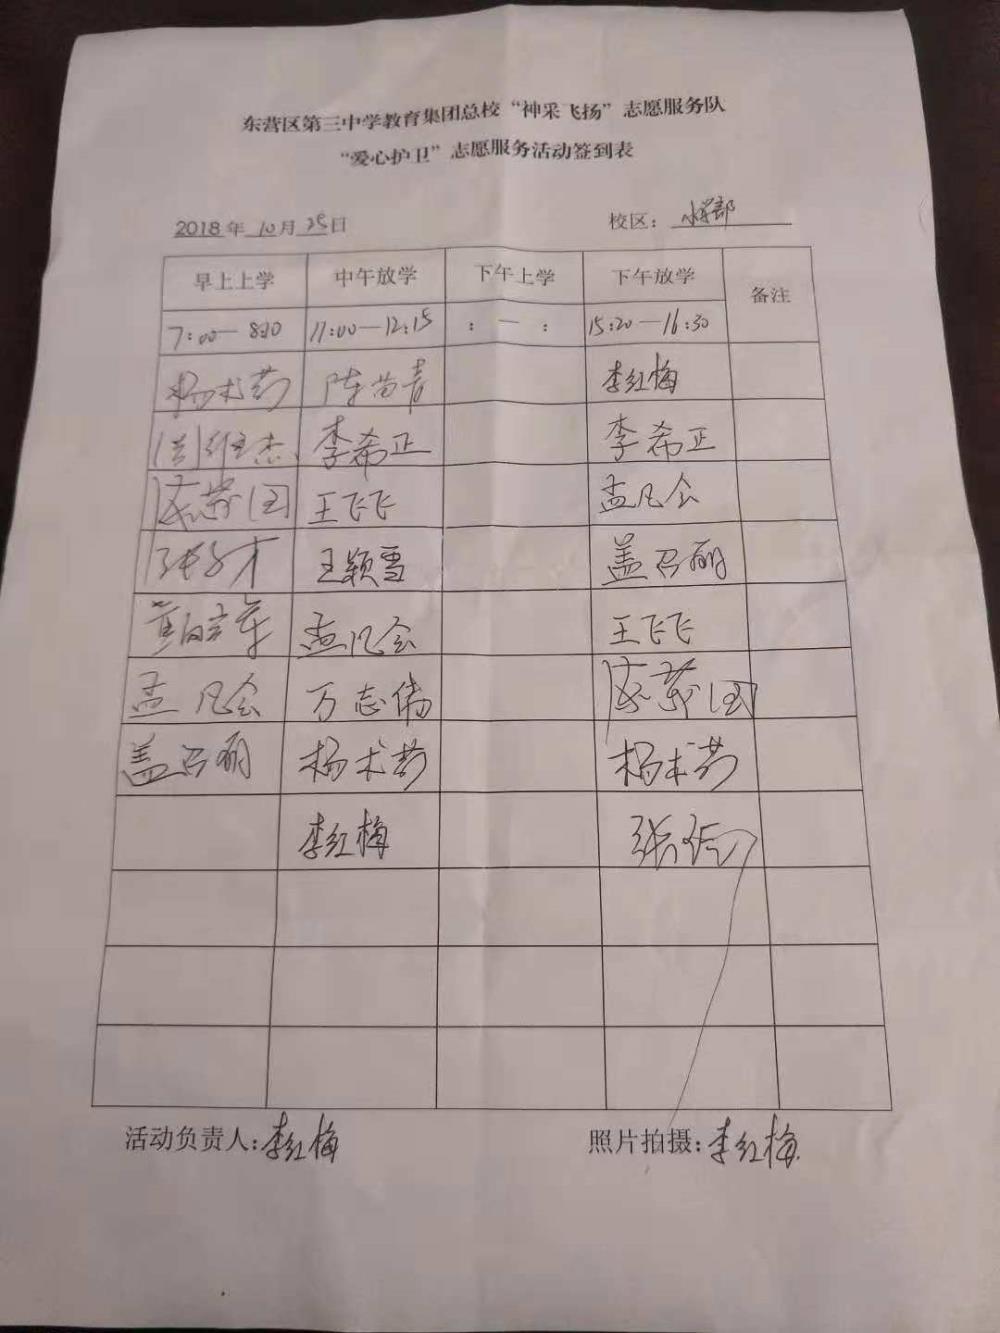 东营区第三中学教育集团总校“神采飞扬”志愿服务队
“爱心护卫”志愿服务活动签到表
2018年10月25日 校区：小学部
早上上学 中午放学 下午上学 下午放学 备注
7:00—8:30 11:00—12:15 : — : 15:20—16:30
杨术芳 陈苗青 李红梅
李希正 李希正
王飞飞 孟凡会
王颖雪 盖召丽
孟凡会 王飞飞
孟凡会 万志伟
盖召丽 杨术芳 杨术芳
李红梅
活动负责人:李红梅 照片拍摄:李红梅